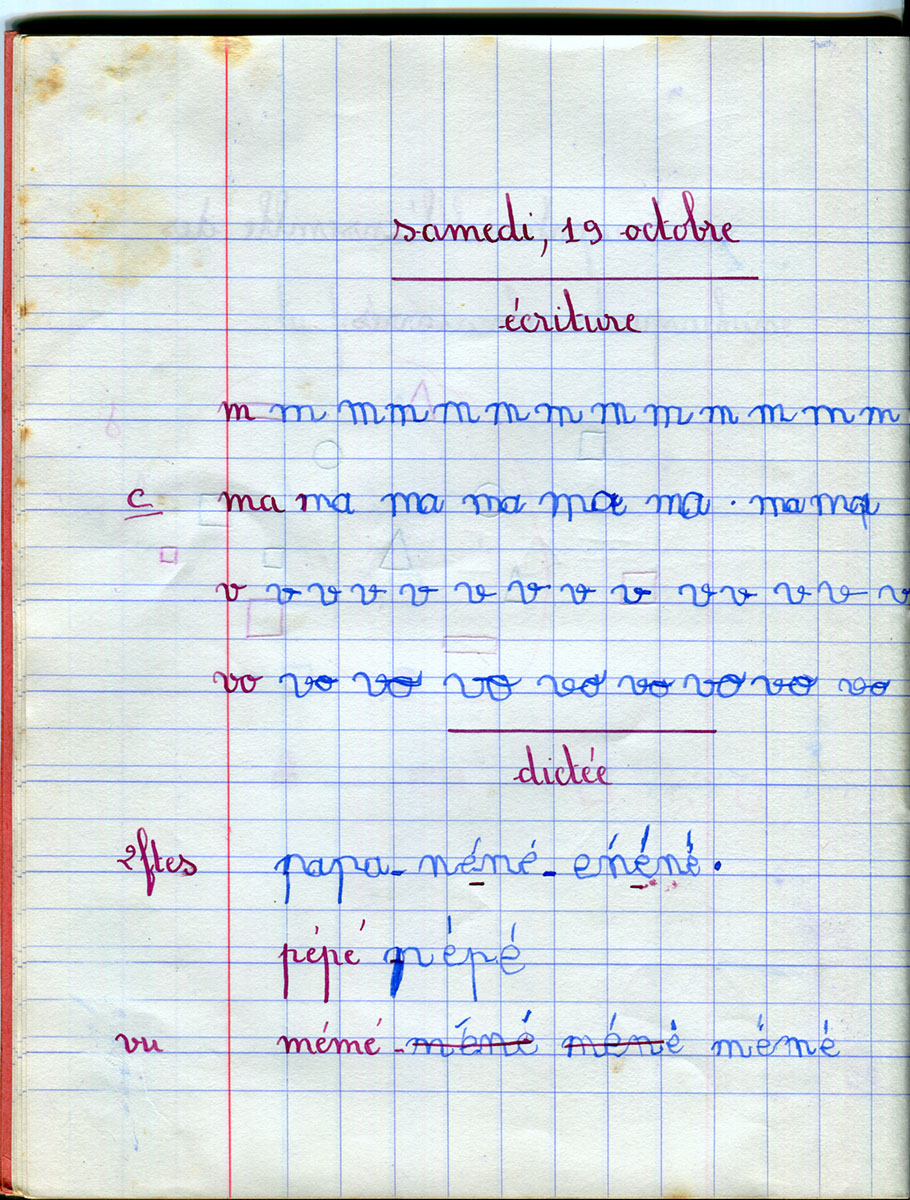 samedi, 19 octobre
écriture
m m m m m m m m m m m m m
c ma ma ma ma ma ma . ma ma
v v v v v v v v v v v v v v
vo vo vo vo vo vo vo vo vo
dictée
2 ftes papa - néné - enéné .
pépé pépé
vu mémé - méné méné mémé